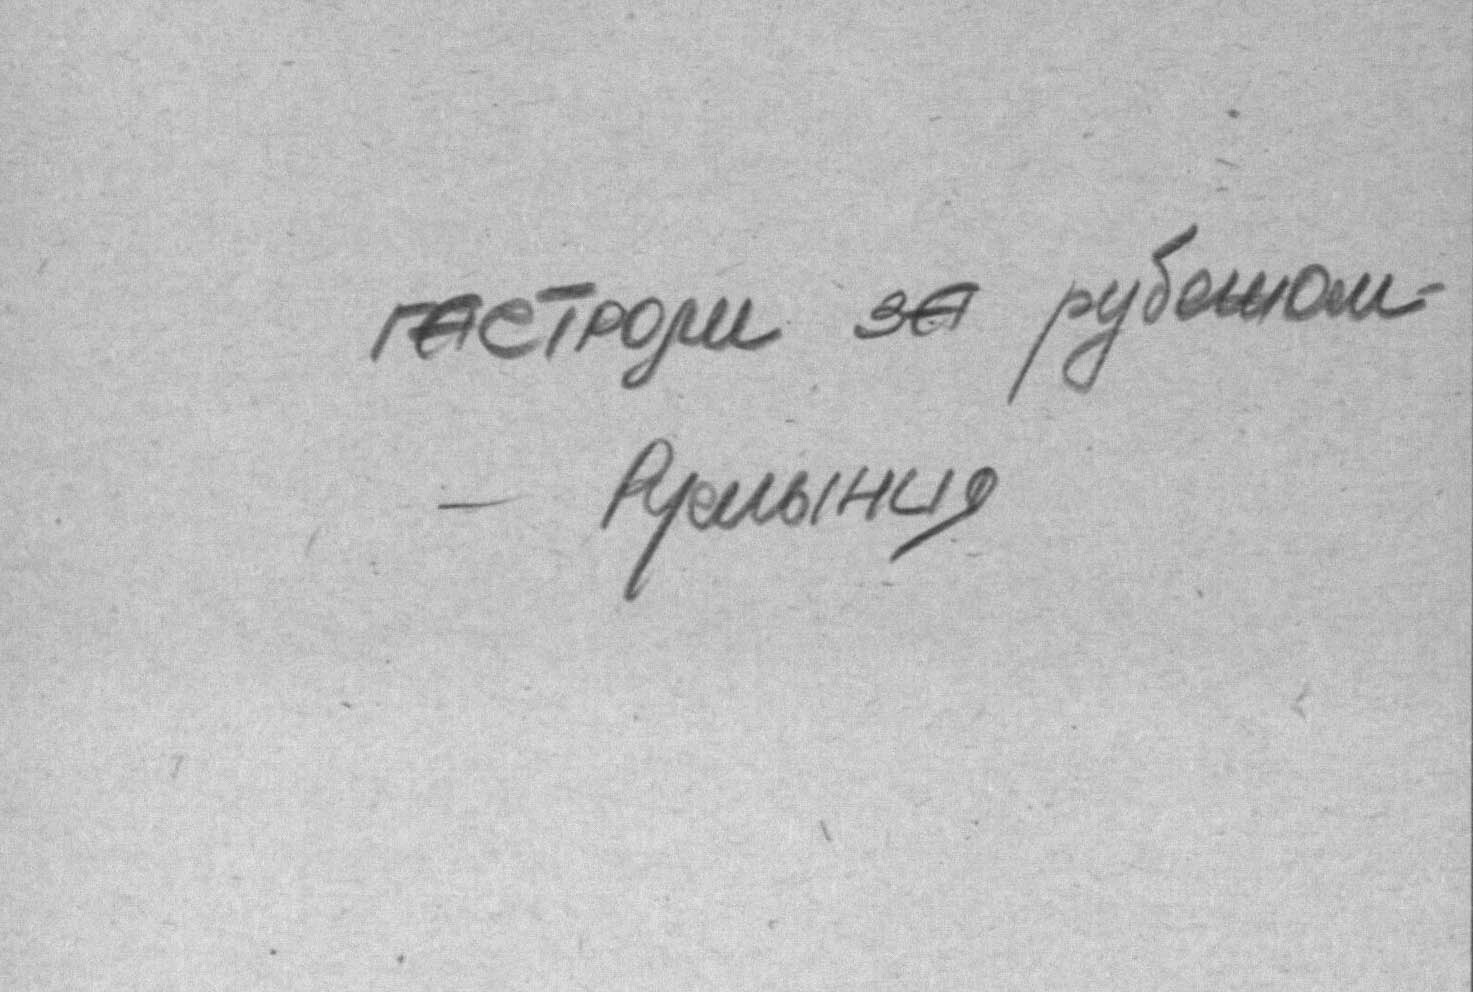 гастроли за рубежом-
- Румыния